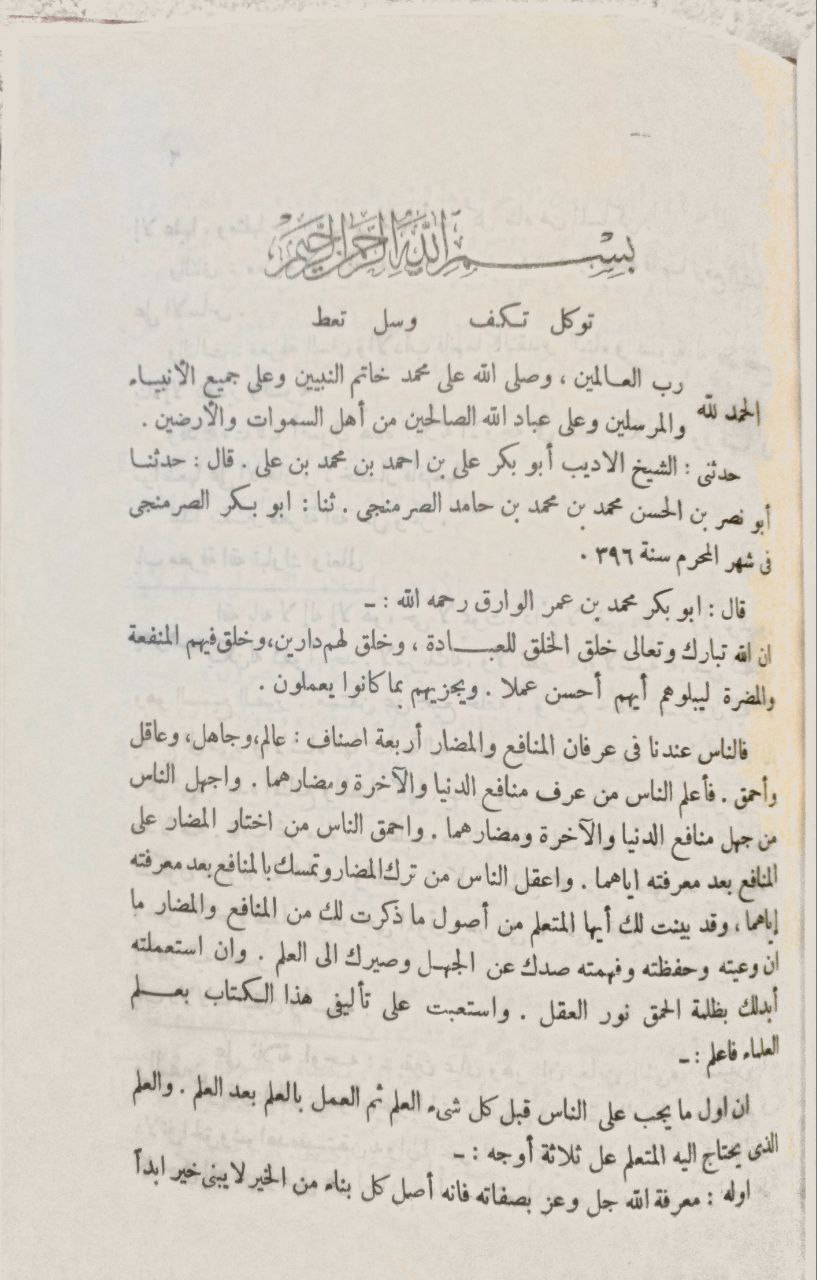 بسم الله الرحمن الرحيم
توكل تكف وسل تعط
الحمد لله رب العالمين ، وصلى الله على محمد خاتم النبيين وعلى جميع الأنبياء
والمرسلين وعلى عباد الله الصالحين من أهل السموات والأرضين .
حدثنى : الشيخ الاديب أبو بكر على بن احمد بن محمد بن على . قال : حدثنا
أبو نصر بن الحسن محمد بن محمد بن حامد الصرمنجى . ثنا : ابو بكر الصرمنجى
فى شهر المحرم سنة ٣٩٦ .
قال : ابو بكر محمد بن عمر الوارق رحمه الله : ــ
ان الله تبارك وتعالى خلق الخلق للعبادة ، وخلق لهم دارين، وخلق فيهم المنفعة
والمضرة ليبلوهم أيهم أحسن عملا . ويجزيهم بما كانوا يعملون .
فالناس عندنا فى عرفان المنافع والمضار أربعة اصناف : عالم، وجاهل، وعاقل
وأحمق . فأعلم الناس من عرف منافع الدنيا والآخرة ومضارهما . واجهل الناس
من جهل منافع الدنيا والآخرة ومضارهما . واحمق الناس من اختار المضار على
المنافع بعد معرفته اياهما . واعقل الناس من ترك المضار وتمسك بالمنافع بعد معرفته
إياهما ، وقد بينت لك أيها المتعلم من أصول ما ذكرت لك من المنافع والمضار ما
ان وعيته وحفظته وفهمته صدك عن الجهل وصيرك الى العلم . وان استعملته
أبدلك بظلمة الحمق نور العقل . واستعبت على تأليفى هذا الكتاب بعلم
العلماء فاعلم : ــ
ان اول ما يجب على الناس قبل كل شىء العلم ثم العمل بالعلم بعد العلم . والعلم
الذى يحتاج اليه المتعلم عل ثلاثة أوجه : ــ
اوله : معرفة الله جل وعز بصفاته فانه أصل كل بناء من الخير لا يبنى خير ابداً